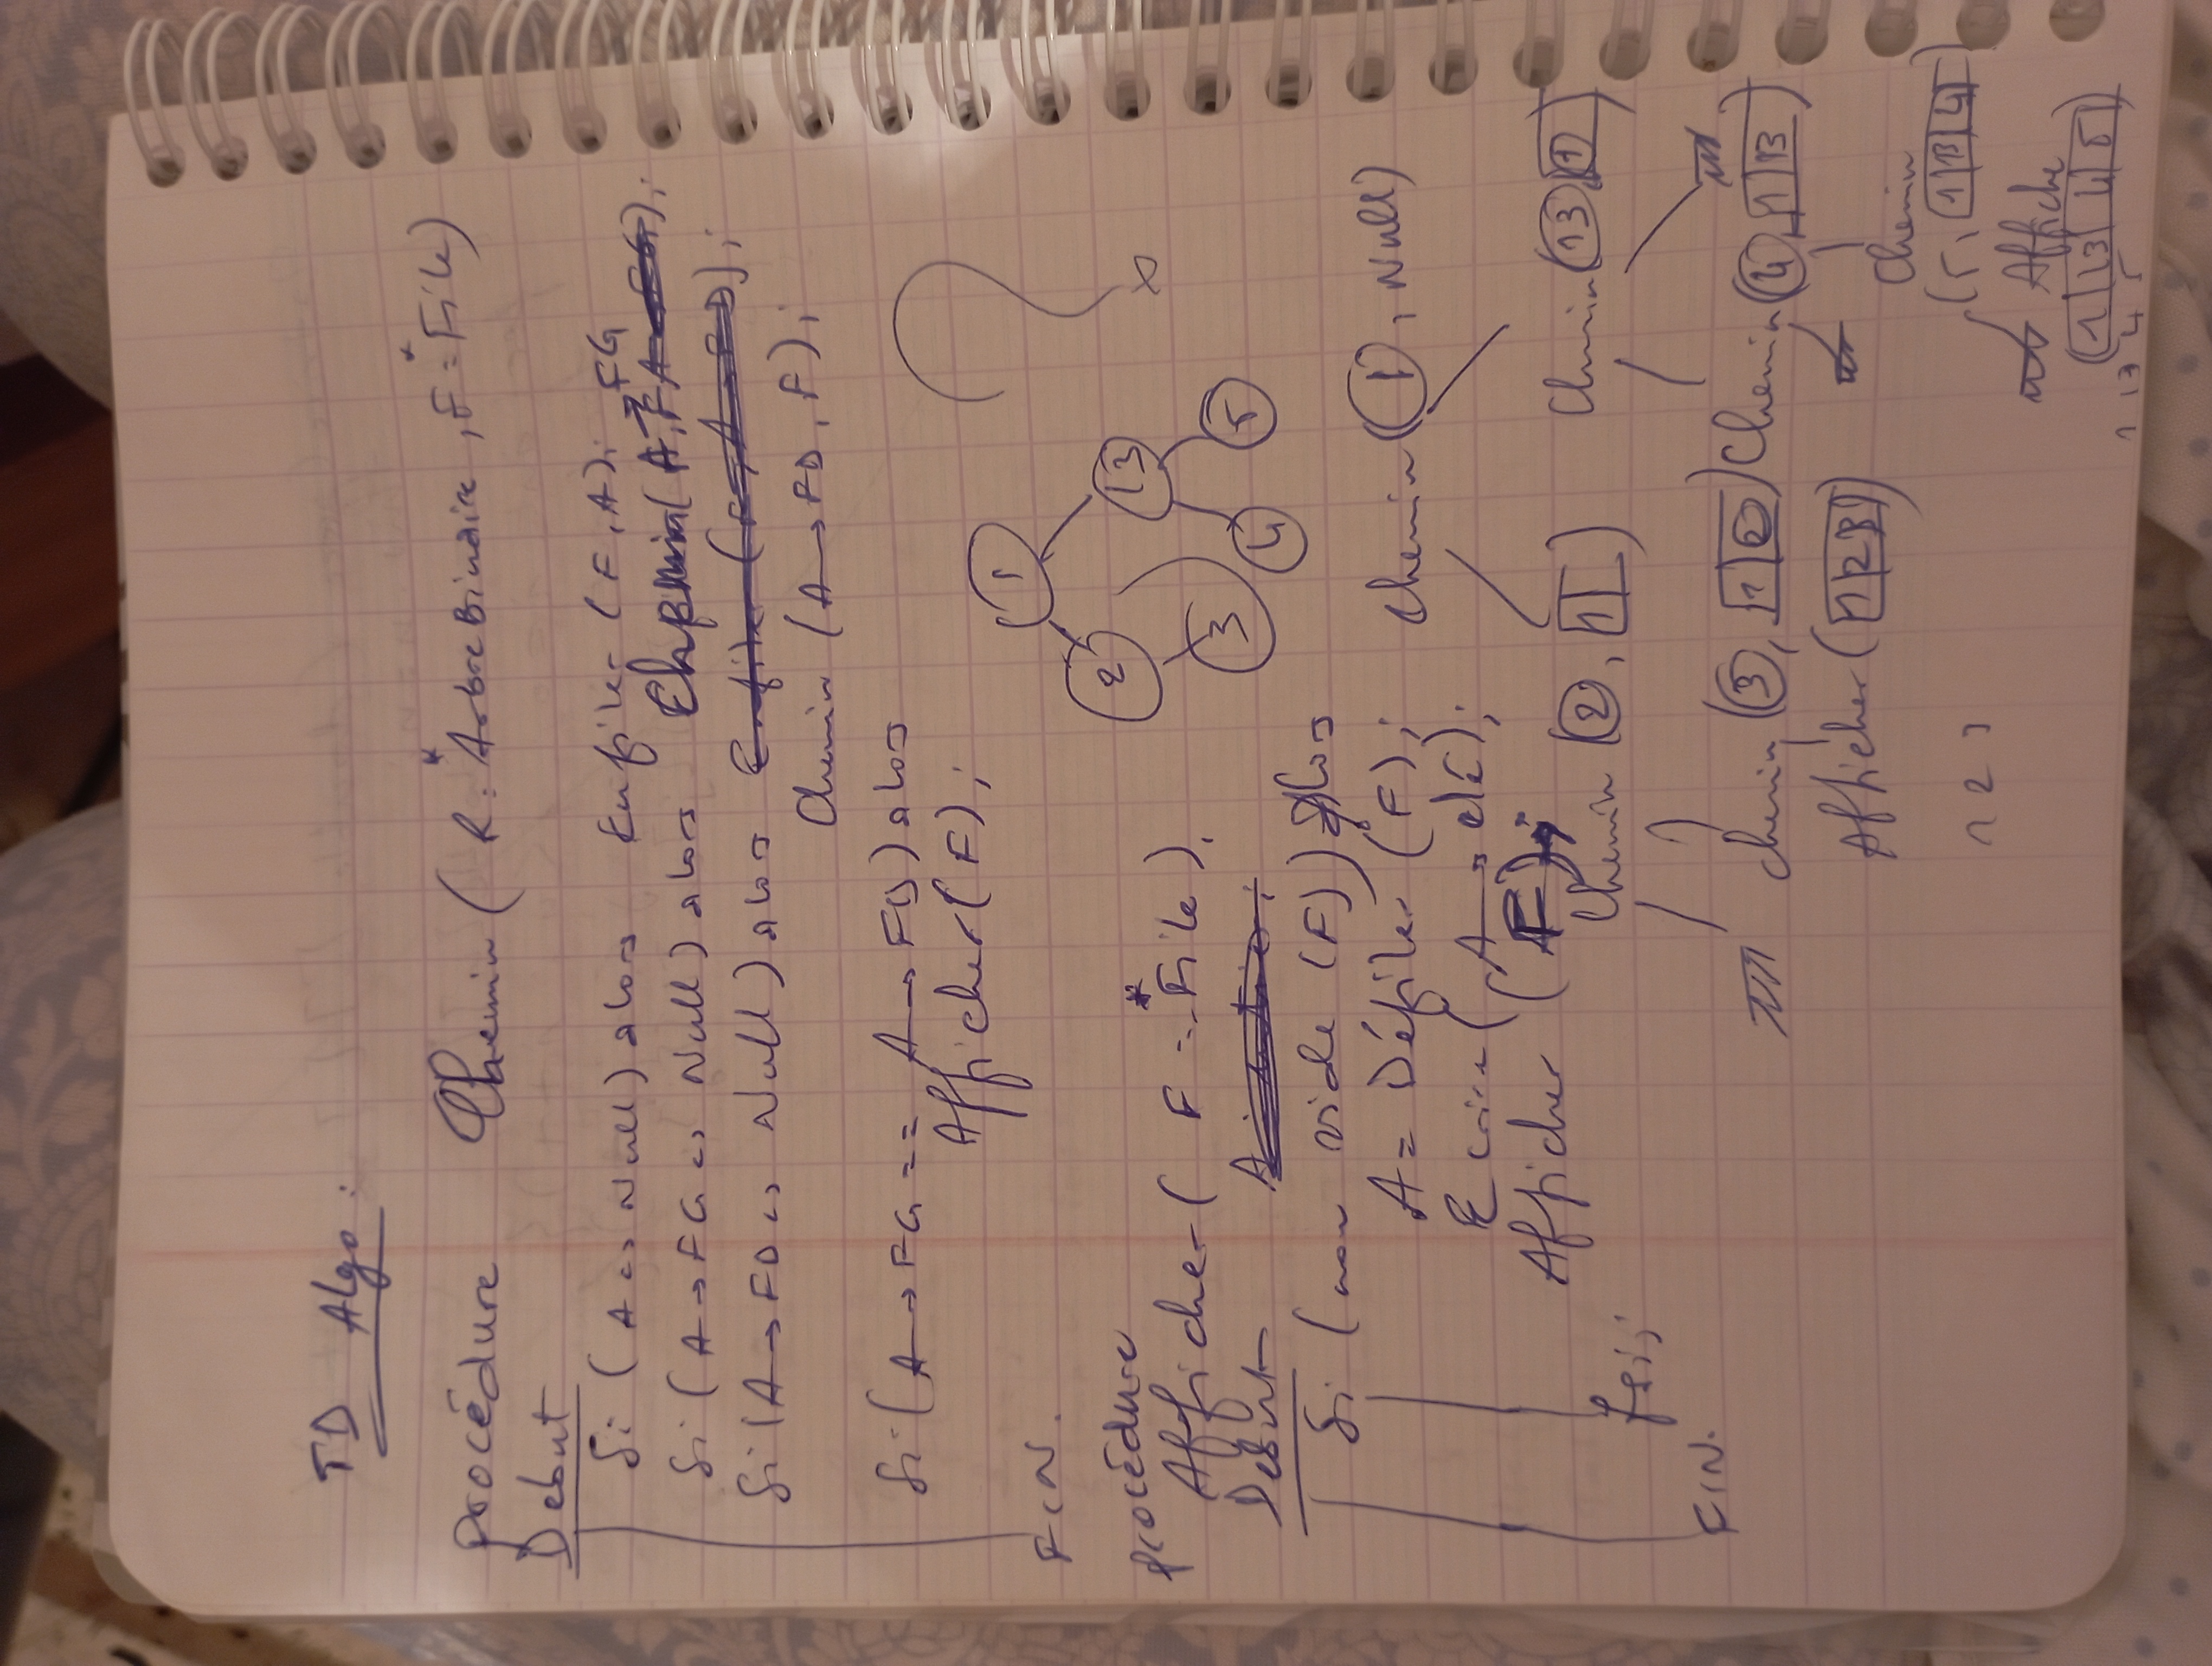 TD Algo :
procédure Chemin ( R : *ArbreBinaire , F : *File )
Debut
Si ( A <> Null ) alors Enfiler ( F , A ) ;
Si ( A → FG <> Null ) alors Chemin ( A → FG , F ) ;
Si ( A → FD <> Null ) alors Enfiler ( F , A → FD ) ;
Chemin ( A → FD , F ) ;
Si ( A → FG == A → FD ) alors
Afficher ( F ) ;
FIN .
procédure
Afficher ( F : *File ) ,
Debut
Si ( non vide (F) ) Alors
A = Défiler ( F ) ;
Ecrire ( A → clé ) ;
Afficher ( F ) ;
fsi ;
FIN .
1
2 13
3 4 5
Chemin ( 1 , Null )
Chemin ( 2 , 1 ) Chemin ( 13 , 1 )
chemin ( 3 , 1 2 ) Chemin ( 4 , 1 13 )
Afficher ( 1 2 3 )
Chemin
( 5 , 1 13 4 )
1 2 3
Affiche
( 1 13 4 5 )
1 13 4 5